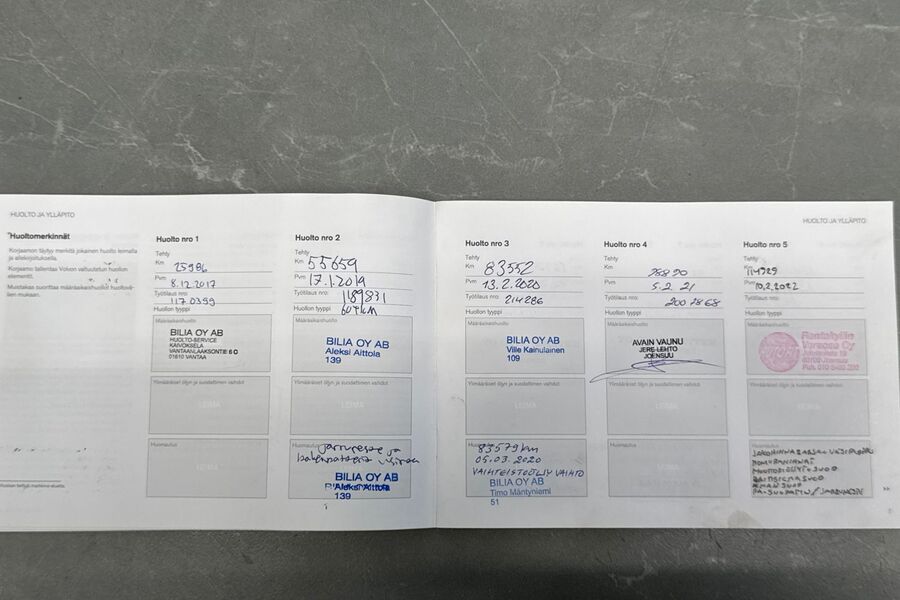 HUOLTO JA YLLÄPITO
Huoltomerkinnät
Korjaamon täytyy merkitä jokainen huolto leimalla
ja allekirjoituksella.
Korjaamo tallentaa Volvon valtuutetun huollon
elementti.
Muistakaa suorittaa määräaikaishuollot huoltoväl-
ien mukaan.
Huolto nro 1
Tehty
Km 25986
Pvm 8.12.2017
Työtilaus nro: 1170399
Huollon tyyppi
Määräaikaishuolto
BILIA OY AB
HUOLTO-SERVICE
KAIVOKSELA
VANTAANLAAKSONTIE 6 C
01610 VANTAA
Ylimääräiset öljyn ja suodattimen vaihdot
LEIMA
Huomautus
Huolto nro 2
Tehty
Km 55659
Pvm 17.1.2019
Työtilaus nro: 1189831
Huollon tyyppi
Määräaikaishuolto
BILIA OY AB
Aleksi Aittola
139
Ylimääräiset öljyn ja suodattimen vaihdot
LEIMA
Huomautus
Jarrupesu ja
BILIA OY AB
Aleksi Aittola
139
HUOLTO JA YLLÄPITO
Huolto nro 3
Tehty
Km 83552
Pvm 13.2.2020
Työtilaus nro: 214286
Huollon tyyppi
Määräaikaishuolto
BILIA OY AB
Ville Kainulainen
109
Ylimääräiset öljyn ja suodattimen vaihdot
LEIMA
Huomautus
83579 km
05.03.2020
VAIHTEISTOÖLJY VAIHTO
BILIA OY AB
Timo Mäntyniemi
51
Huolto nro 4
Tehty
Km
Pvm 5.2.21
Työtilaus nro: 2007868
Huollon tyyppi
Määräaikaishuolto
AVAIN VAUNU
JERE LEHTO
JOENSUU
Ylimääräiset öljyn ja suodattimen vaihdot
LEIMA
Huomautus
Huolto nro 5
Tehty
Km 114929
Pvm 10.2.2022
Työtilaus nro:
Huollon tyyppi
Määräaikaishuolto
Rantakylän
Varaosa Oy
Ylimääräiset öljyn ja suodattimen vaihdot
LEIMA
Huomautus
>>